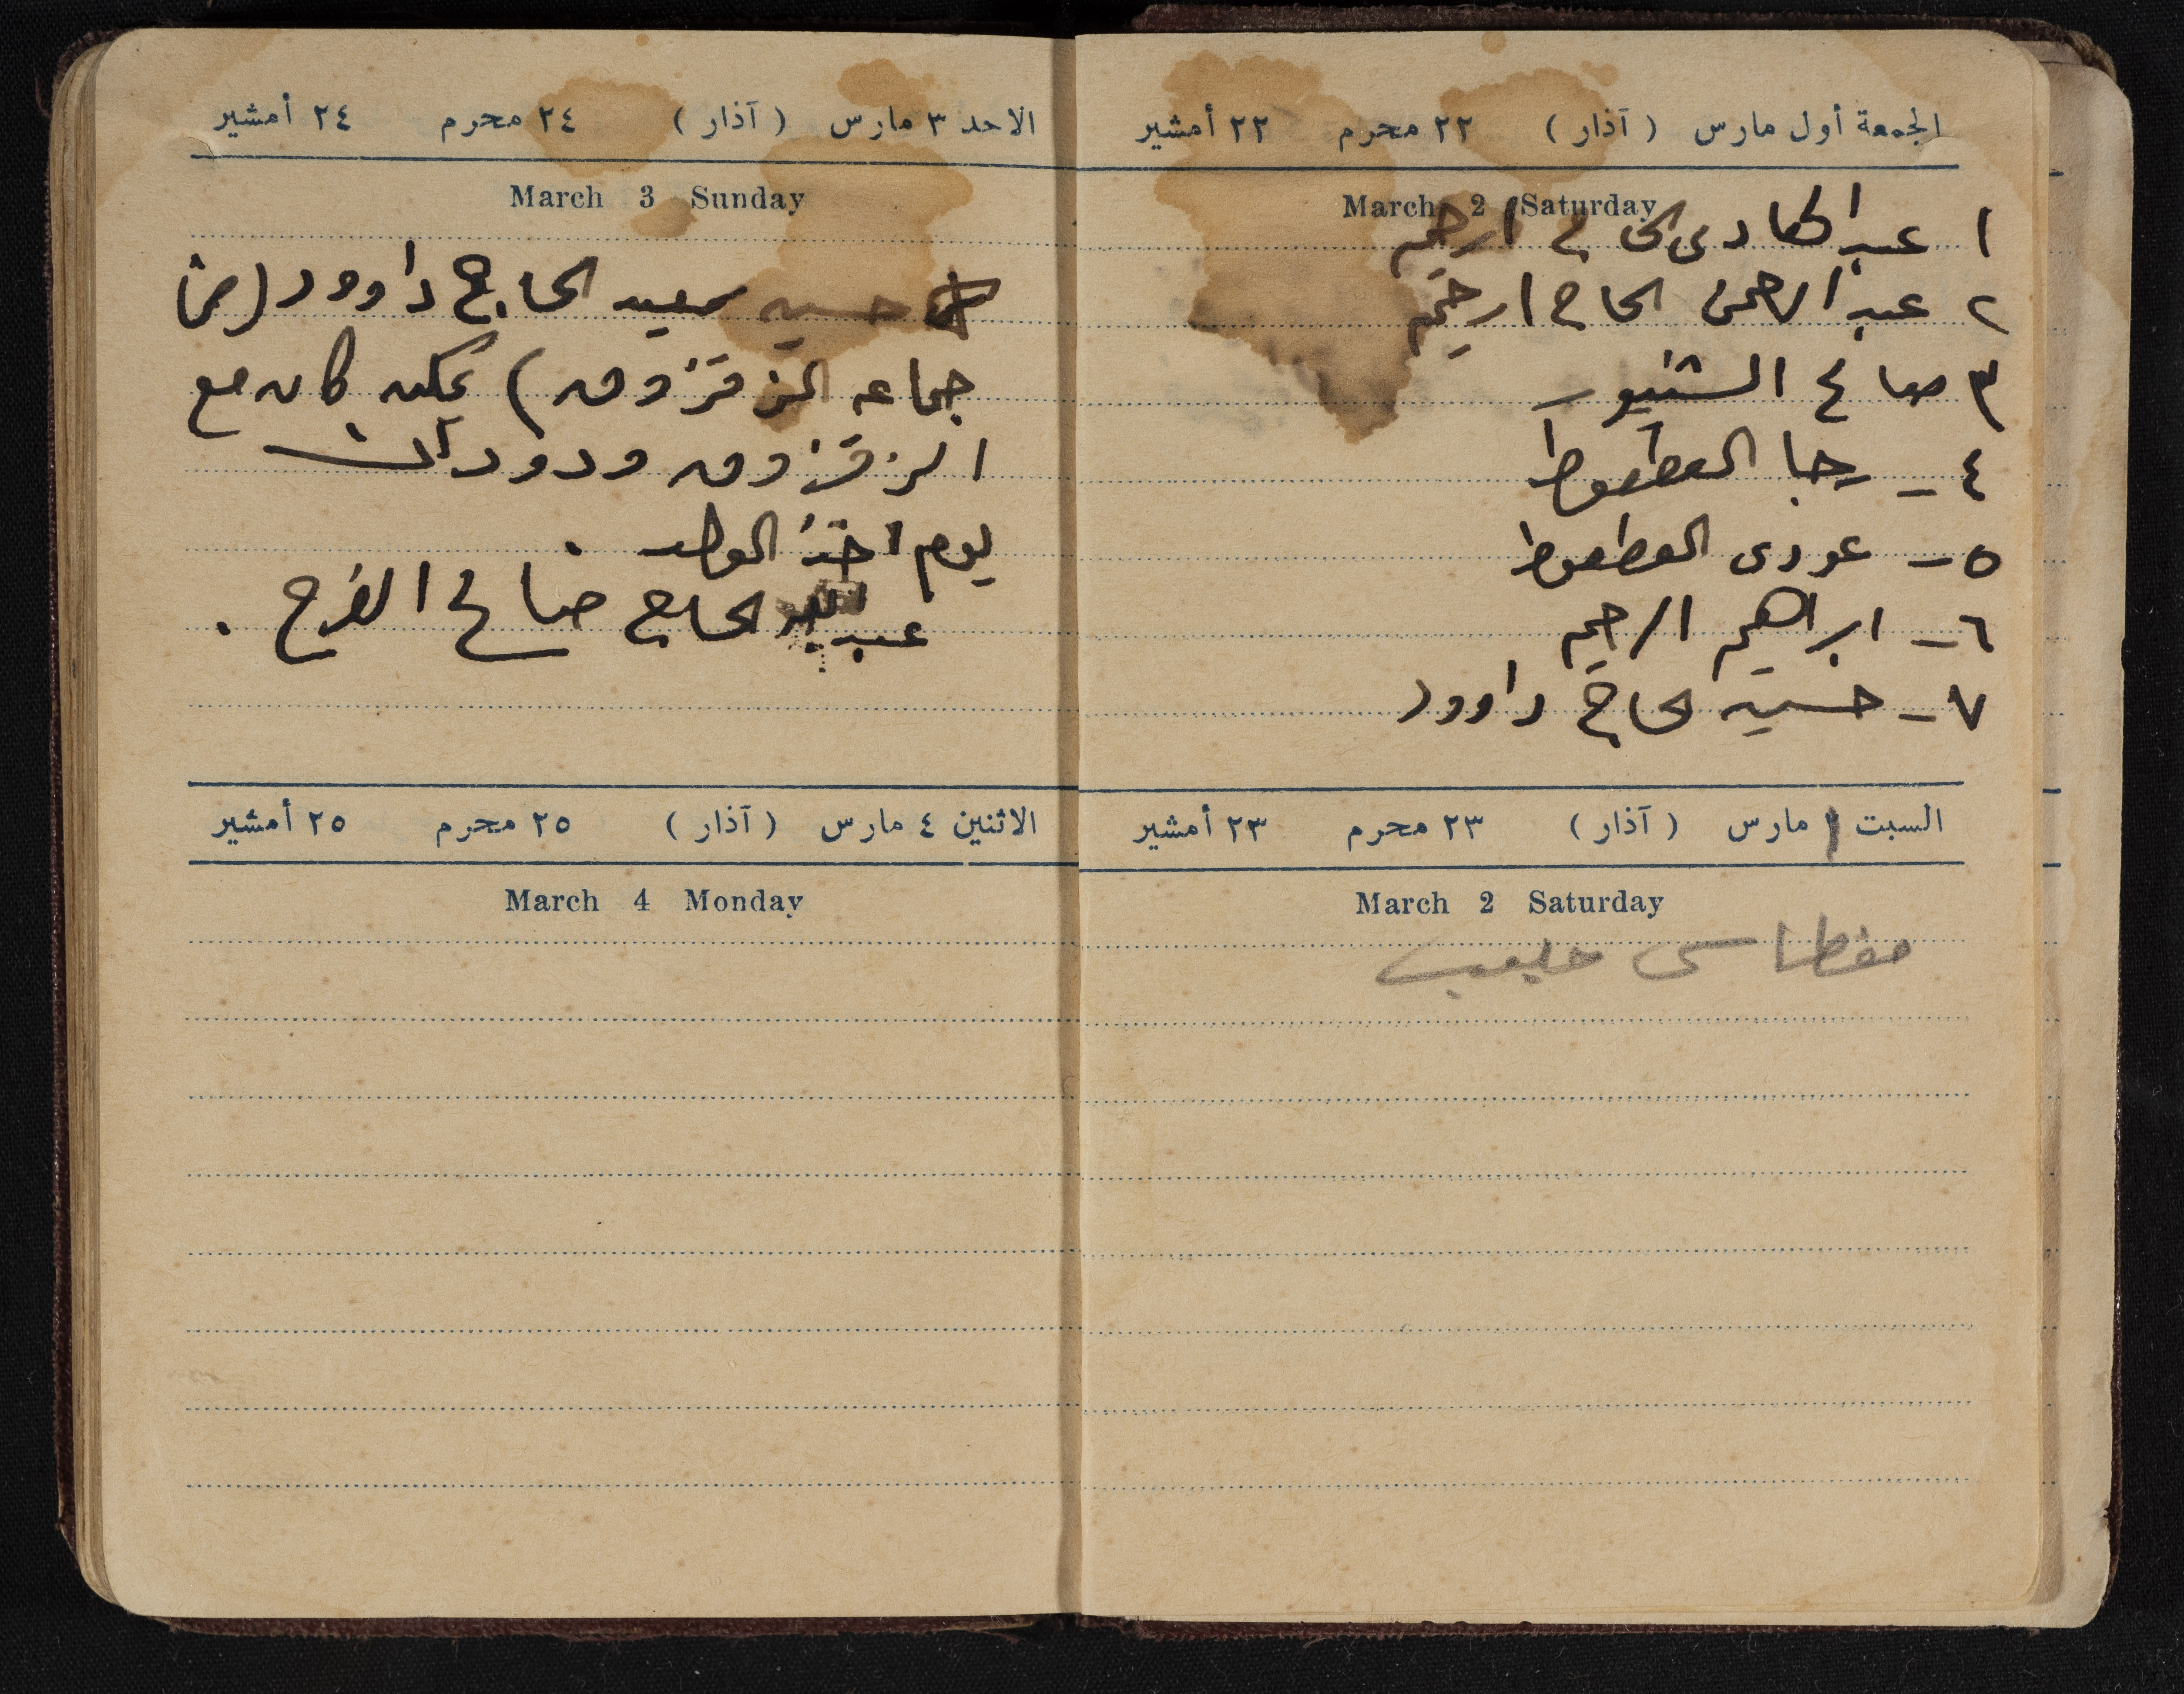 الجمعة أول مارس (آذار) ٢٢ محرم ٢٢ أمشير
March 2 Saturday
١ عبد الهادي الحاج ارحيم
٢ عبد الرحمن الحاج ارحيم
٣ صالح الشنيور
٤ - رجا العطعوط
٥ - عودى العطعوط
٦ - ابراهيم الرحيم
٧ - حسين الحاج داوود
السبت مارس (آذار) ٢٣ محرم ٢٣ أمشير
March 2 Saturday
حليب
الاحد ٣ مارس (آذار) ٢٤ محرم ٢٤ أمشير
March 3 Sunday
حسين سعيد الحاج داوود (من
جماعه الزقزوق) يمكن كان مع
الزقزوق
يوم اخذ الولد .
عبد الحاج صالح الفرح .
الاثنين ٤ مارس (آذار) ٢٥ محرم ٢٥ أمشير
March 4 Monday